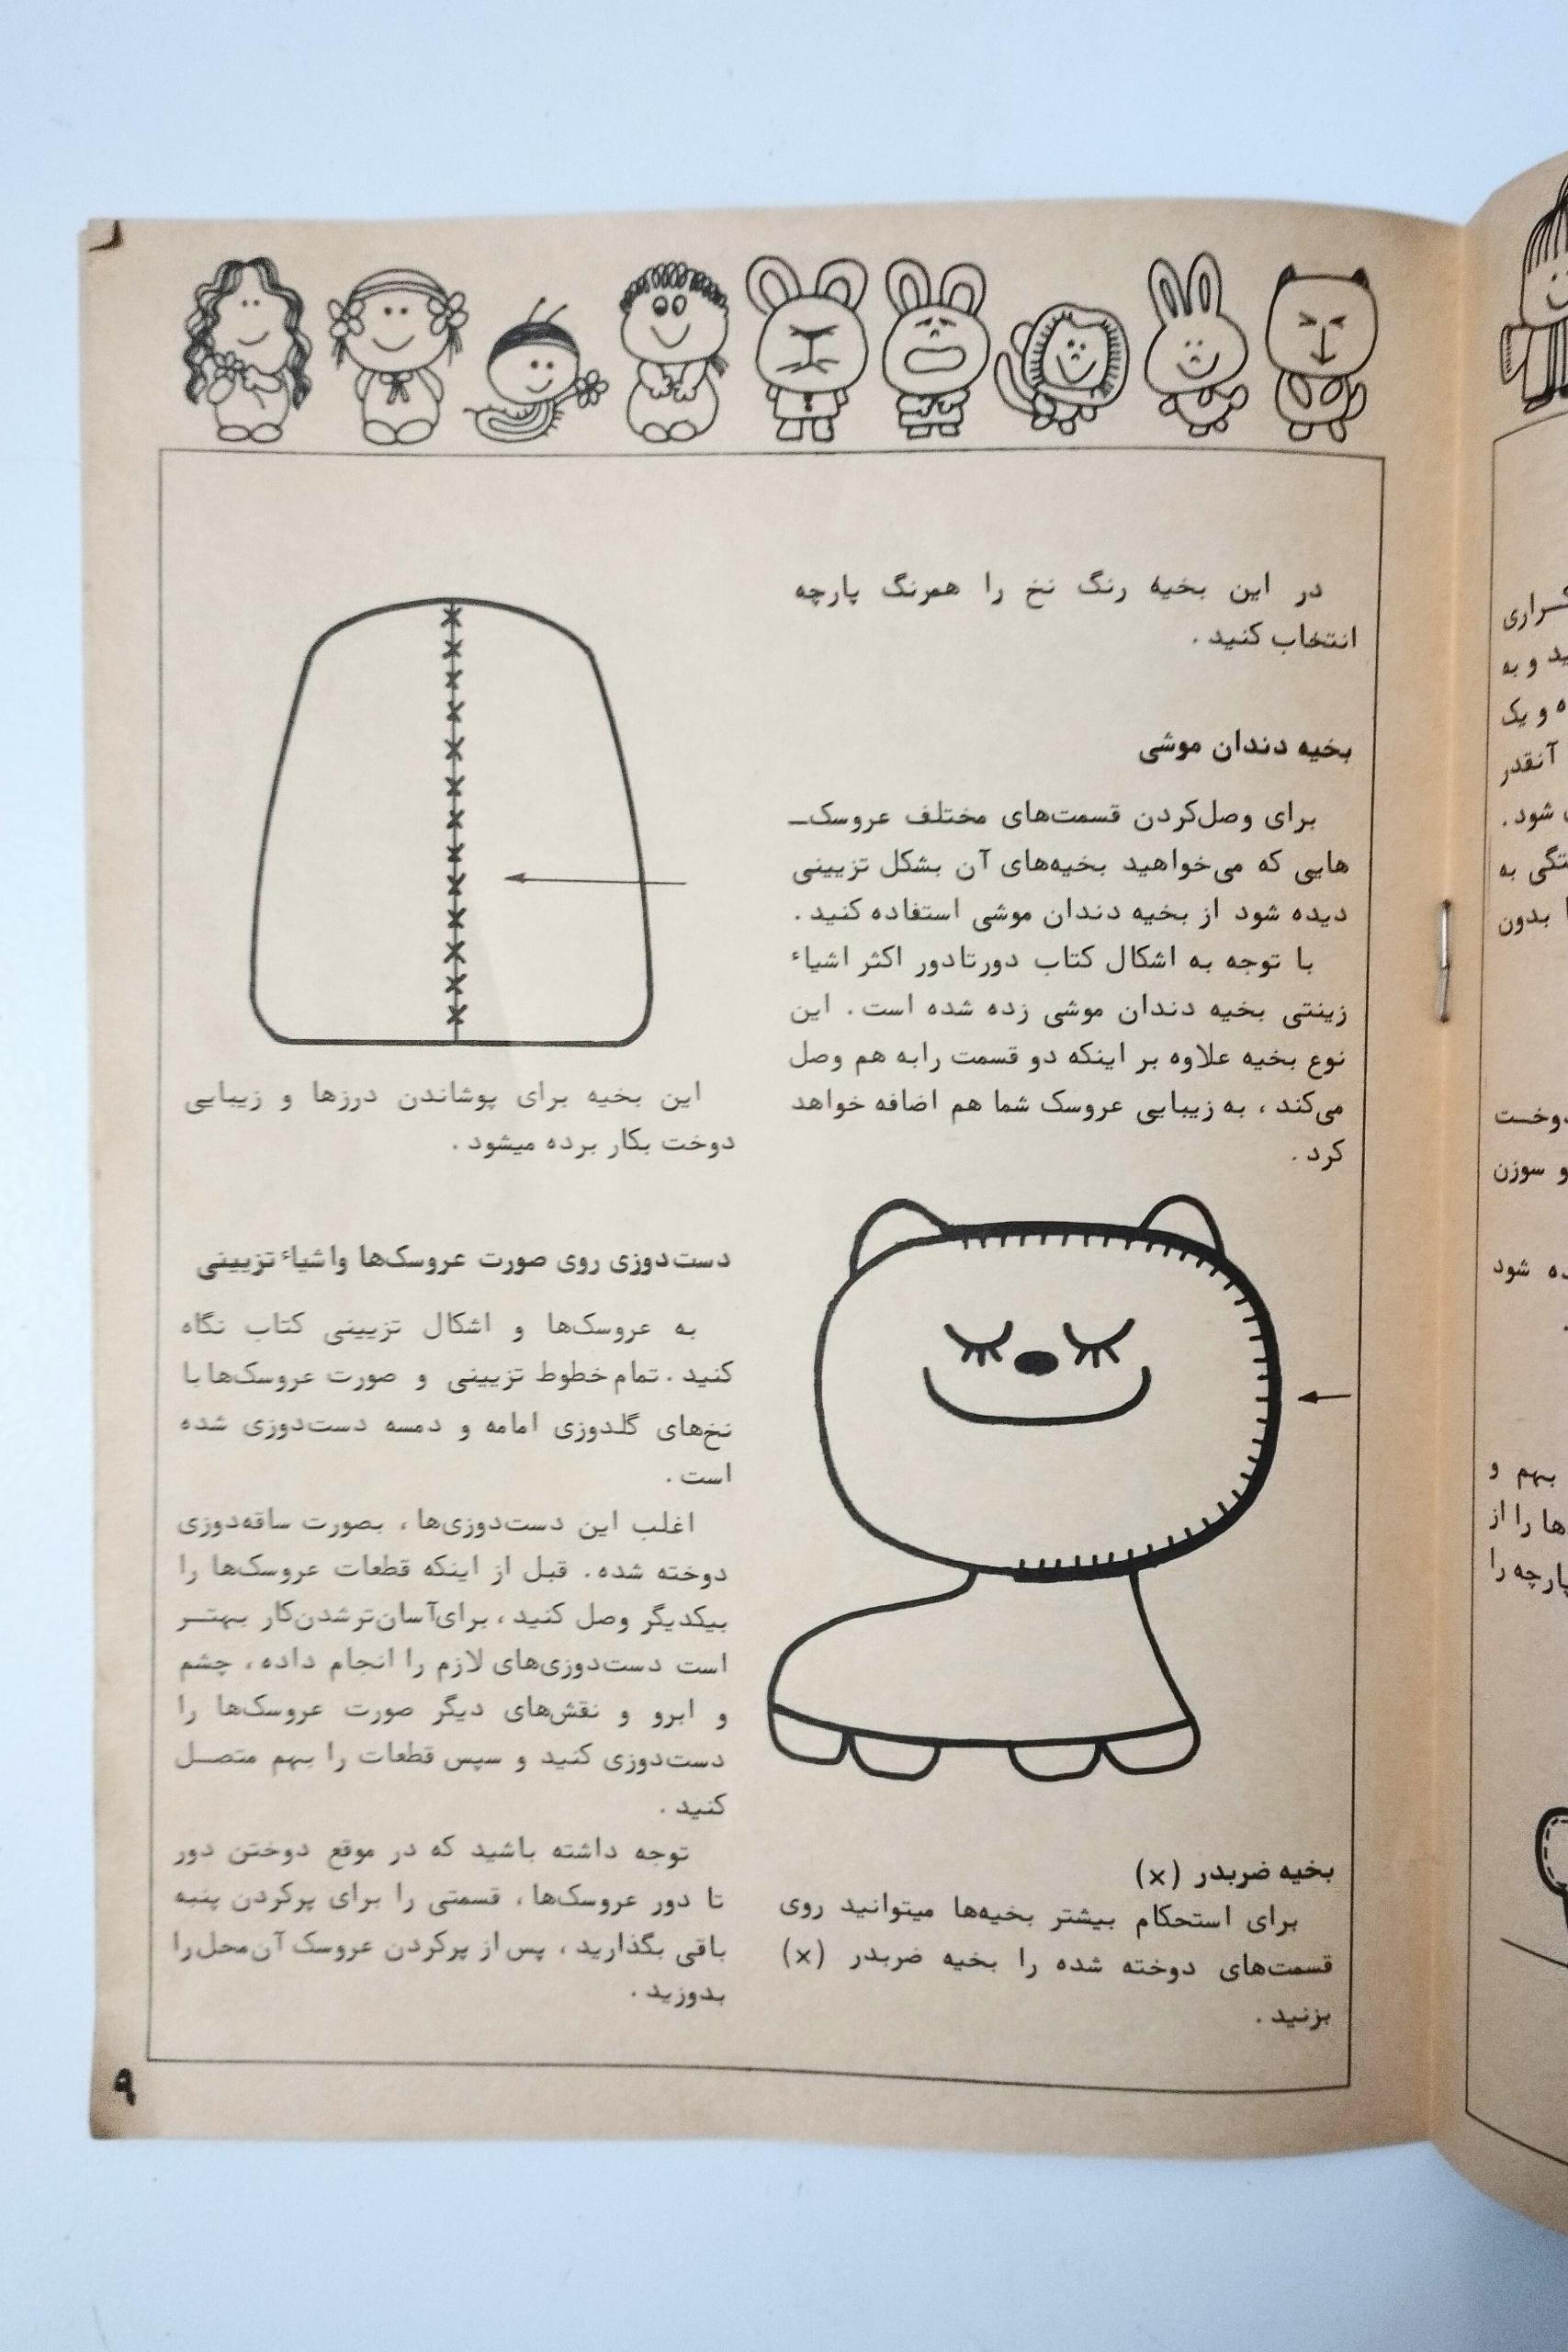 در این بخیهٔ رنگ نخ را همرنگ پارچه
انتخاب کنید.
بخیه دندان موشی
برای وصل‌کردن قسمت‌های مختلف عروسک‌ـ
هایی که می‌خواهید بخیه‌های آن بشکل تزیینی
دیده شود از بخیه دندان موشی استفاده کنید.
با توجه به اشکال کتاب دورتادور اکثر اشیاء
زینتی بخیه دندان موشی زده شده است. این
نوع بخیه علاوه بر اینکه دو قسمت رابه هم وصل
می‌کند، به زیبایی عروسک شما هم اضافه خواهد
کرد.
بخیه ضربدر (×)
برای استحکام بیشتر بخیه‌ها میتوانید روی
قسمت‌های دوخته شده را بخیه ضربدر (×)
بزنید.
این بخیه برای پوشاندن درزها و زیبایی
دوخت بکار برده میشود.
دست‌دوزی روی صورت عروسک‌ها واشیاء تزیینی
به عروسک‌ها و اشکال تزیینی کتاب نگاه
کنید. تمام خطوط تزیینی و صورت عروسک‌ها با
نخ‌های گلدوزی امامه و دمسه دست‌دوزی شده
است.
اغلب این دست‌دوزی‌ها، بصورت ساقه‌دوزی
دوخته شده. قبل از اینکه قطعات عروسک‌ها را
بیکدیگر وصل کنید، برای‌آسان‌ترشدن‌کار بهتـر
است دست‌دوزی‌های لازم را انجام داده، چشم
و ابرو و نقش‌های دیگر صورت عروسک‌ها را
دست‌دوزی کنید و سپس قطعات را بهم متصـل
کنید.
توجه داشته باشید که در موقع دوختن دور
تا دور عروسک‌ها، قسمتی را برای پرکردن پنبه
باقی بگذارید، پس‌از پرکردن عروسک آن‌محل‌را
بدوزید.
۹
کـراری
ید و به
ه و یک
آنقدر
شود.
تگی به
بدون
دوخـت
و سوزن
ده شود
بهم و
ها را از
پارچه را